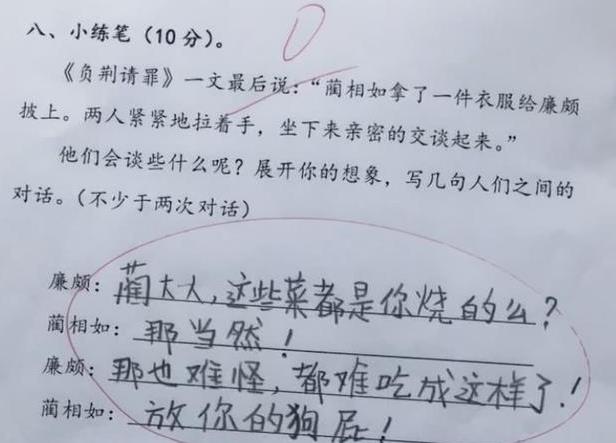 八、小练笔（10分）。
0
《负荆请罪》一文最后说：“蔺相如拿了一件衣服给廉颇
披上。两人紧紧地拉着手，坐下来亲密的交谈起来。”
他们会谈些什么呢？展开你的想象，写几句人们之间的
对话。（不少于两次对话）
廉颇：蔺大大，这些菜都是你烧的么？
蔺相如：那当然！
廉颇：那也难怪，都难吃成这样了！
蔺相如：放你的狗屁！